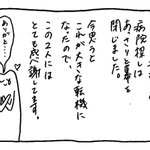 病院探しは
あっさりと幕を
閉じました。
今思うと
これが大きな転機に
なったので、
この2人には
とても感謝してます。
ありがと…